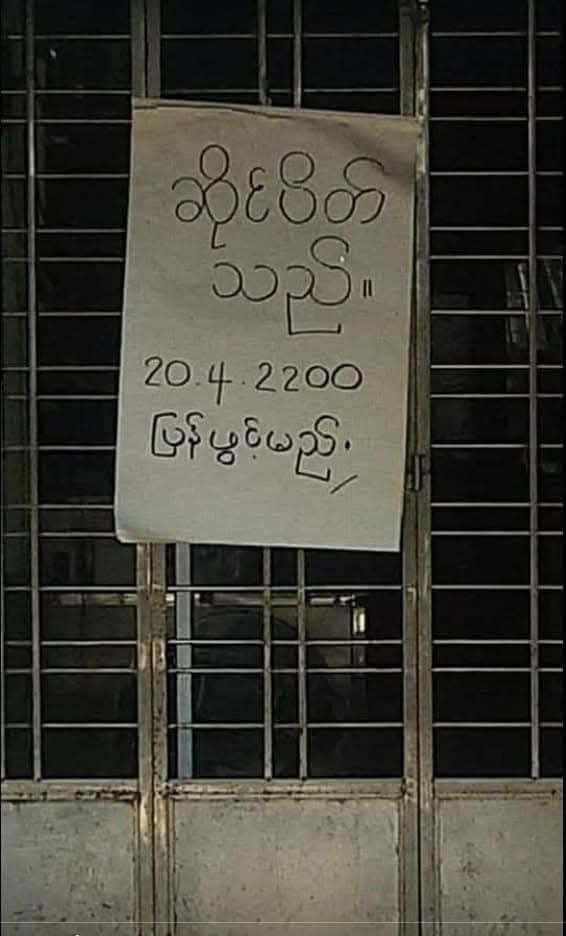 ဆိုင်ပိတ်
သည်။
20.4.2200
ပြန်ဖွင့်မည်.